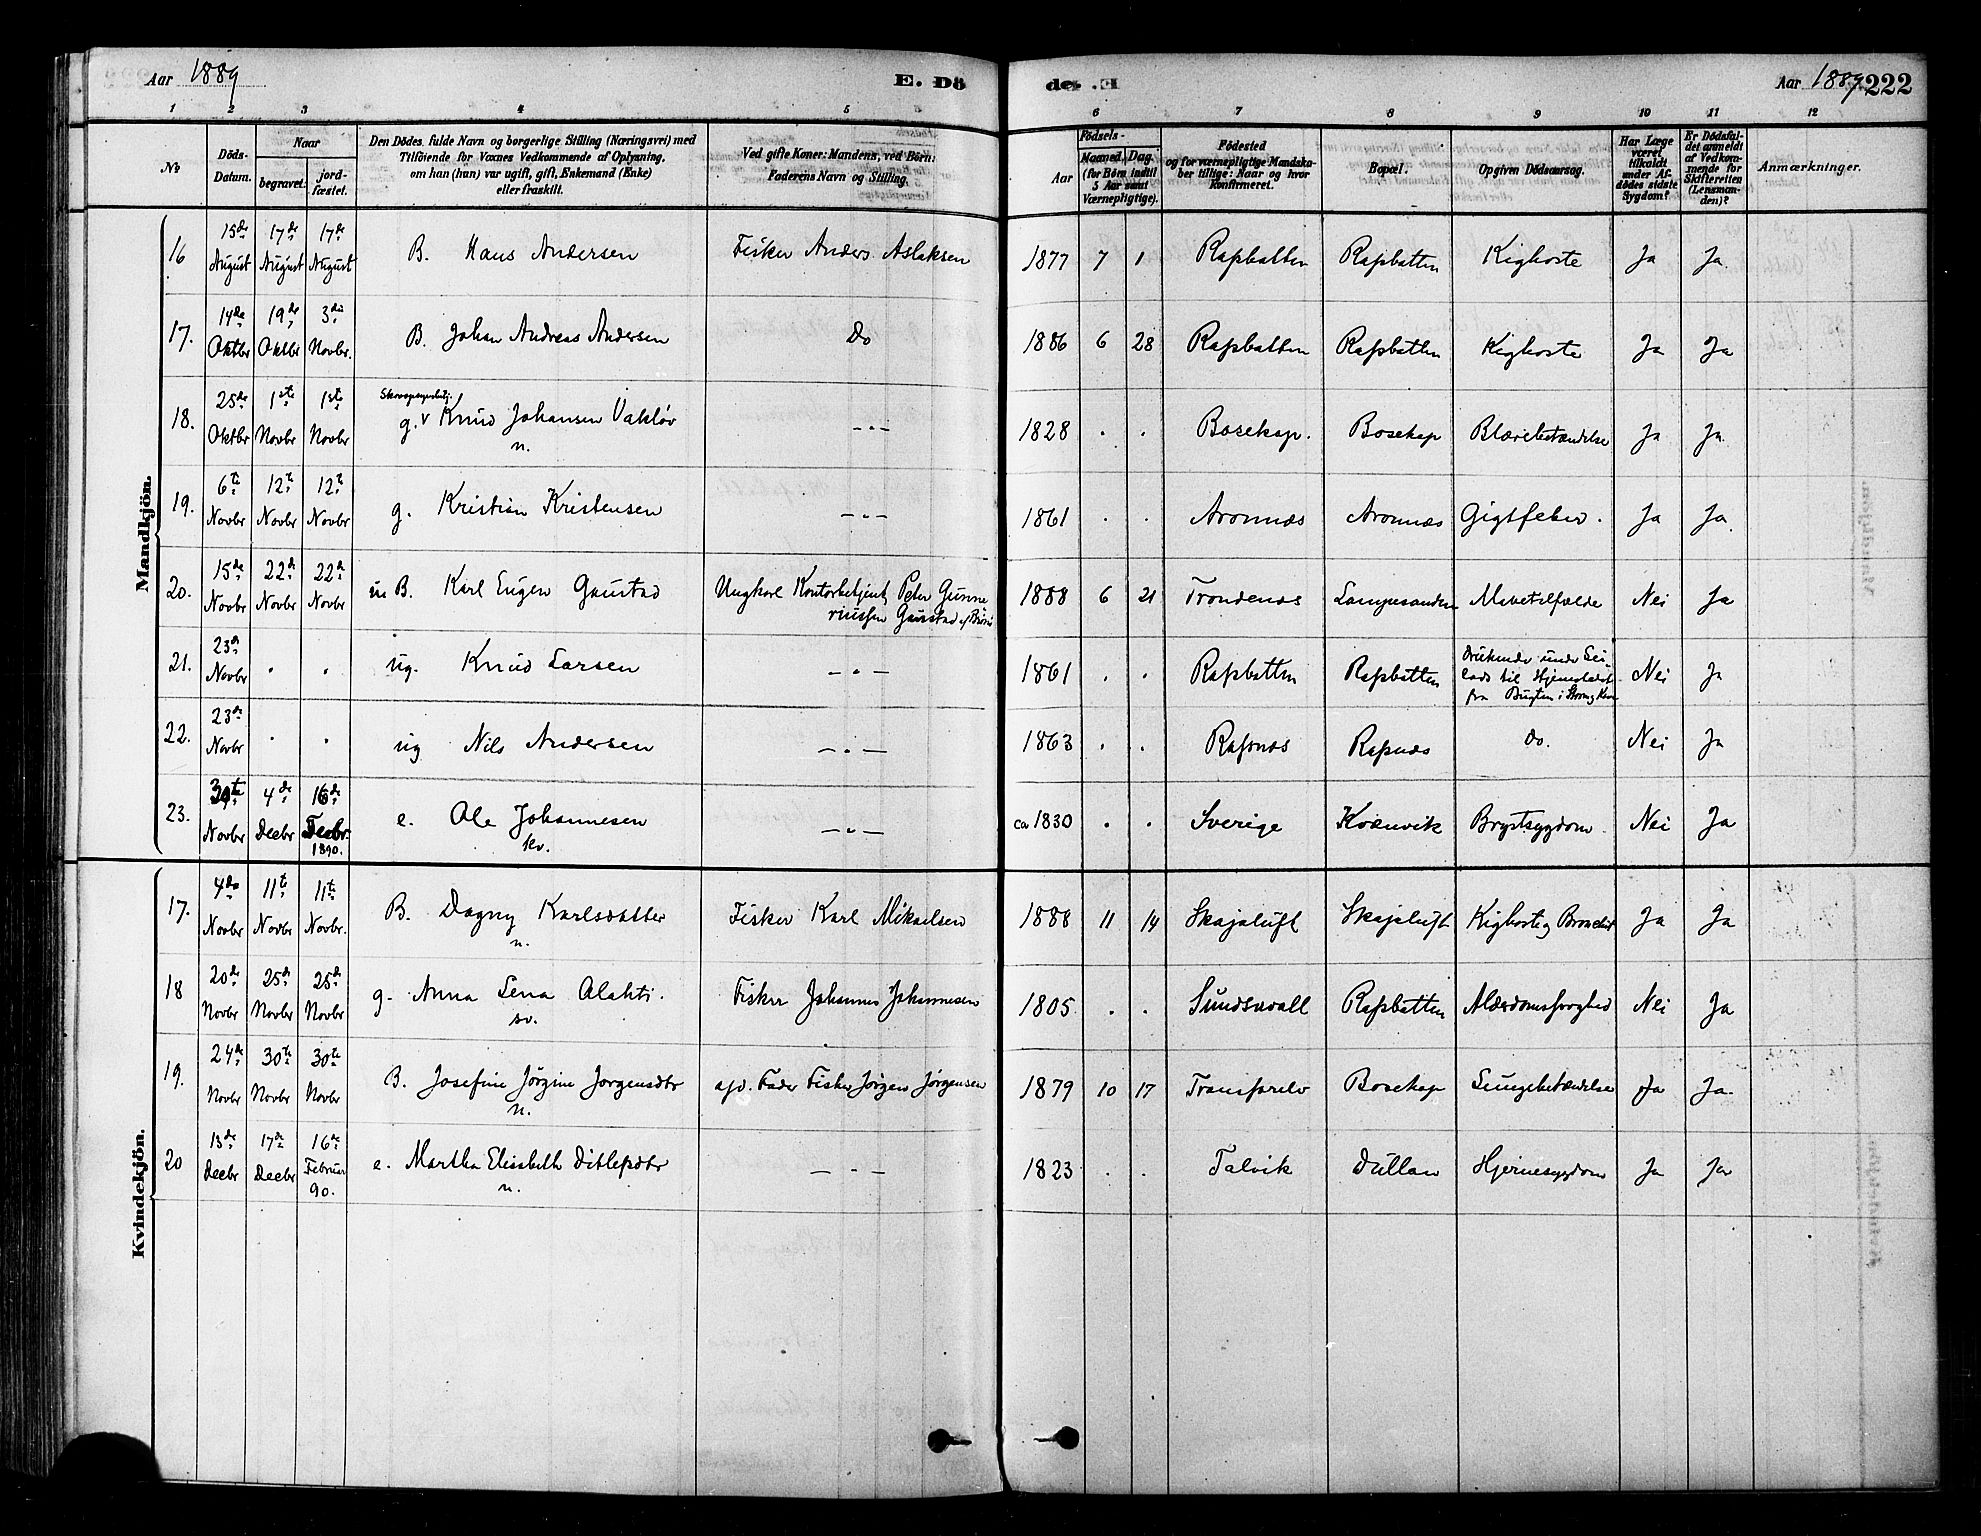 Aar 1889 E. Dö
de. .E Aar 1889 222
1 2 3 4 5 6 7 8 9 10 11 12
No
Döds-Datum.
Naar
begravet.
jord-fæstet.
Den Dödes fulde Navn og borgerlige Stilling (Næringsvei) med
Tilföiende for Voxnes Vedkommende af Oplysning,
om han (hun) var ugift, gift, Enkemand (Enke)
eller fraskilt.
Ved gifte Koner: Mandens, ved Börn:
Faderens Navn og Stilling.
Födsels-
Aar
Maaned. Dag.
(for Börn indtil
5 Aar samt
Værnepligtige).
Födested
og for værnepligtige Mandska-
ber tillige: Naar og hvor
konfirmeret.
Bopæl.
Opgiven Dödsaarsag.
Har Læge
været
tilkaldt
under Af-
dödes sidste
Sygdom?
Er Dödsfal-
det anmeldt
af Vedkom-
mende for
Skifteretten
(Lensman-
den)?
Anmærkninger.
Mandkjön.
16 15de August 17de August 17de August B. Hans Andersen Fisker Anders Aslaksen 1877 7 1 Rafsbatten Rafsbatten Kighoste Ja Ja.
17. 14de Oktbr 19de Oktbr 3die Novbr. B. Johan Andreas Andersen Do 1886 6 28 Rafsbatten Rafsbatten Kighoste Ja Ja
18. 25de Oktbr 1ste Novbr 1ste Novbr g. v Knud Johansen n. — " — 1828 . . Bosekop. Bosekop Blærebetændelse Ja Ja.
19. 6te Novbr 12te Novbr 12te Novbr g. Kristian Kristensen — " — 1861 . . Aronnæs Aronnæs Gigtfeber. Ja Ja.
20. 15de Novbr 22de Novbr 22de Novbr u B. Karl Eugen Gaustad Ungkarl Kontorbetjent Peter Gunne
riussen Gaustad 1888 6 21 Trondenæs Lampesanden Mavetilfælde Nei Ja
21. 23de Novbr . . ug. Knud Larsen — " — 1861 . . Rafsbatten Rafsbatten Druknede under Sei-
lads til Hjemstedet
fra Bugten i Nei Ja
22. 23de Novbr . . ug Nils Andersen — " — 1863 . . Rafsnæs Rafsnæs do. Nei Ja
23. 30te Novbr 4de Decbr 16de Febr. 1890. e. Ole Johannesen kv. — " — ca 1830 . . Sverige Kvænvik Brystsygdom. Nei Ja
Kvindekjön.
17. 4de Novbr 11te Novbr 11te Novbr. B. Dagny Karlsdatter n. Fisker Karl Mikaelsen 1888 11 14 Skajaluft Skajaluft Kighoste og Ja Ja
18 20de Novbr 25de Novbr 25de Novbr g. Anna Lena Alahti. sv. Fisker Johannes Johannesen 1805 . . Sundsvall Rafsbatten Alderdomssvaghed Nei Ja
19. 24de Novbr 30te Novbr 30te Novbr B. Josefine Jörgine Jörgensdtr n. afd. Fader Fisker Jörgen Jörgensen 1879 10 17 Transfarelv Bosekop Lungebetændelse Ja Ja.
20 13de Decbr 17de Decbr 16de Februar 90. e. Martha Elisabeth Ditlefsdtr n. — " — 1823 . . Talvik Bullan Hjernesygdom Ja Ja